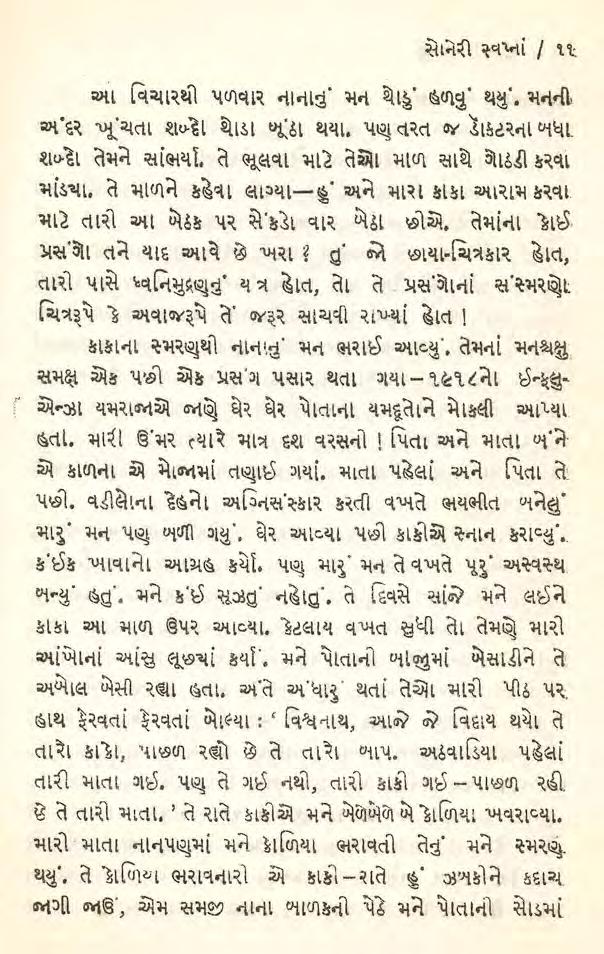 સોનેરી સ્વપ્નાં / ૧૧
આ વિચારથી પળવાર નાનાનું મન થોડું હળવું થયું. મનની
અંદર ખૂંચતા શબ્દો થોડા બૂઠા થયા. પણ તરત જ ડૉકટરના બધા
શબ્દો તેમને સાંભર્યા. તે ભૂલવા માટે તેઓ માળ સાથે ગોઠડી કરવા
માંડયા. તે માળને કહેવા લાગ્યા—હું અને મારા કાકા આરામ કરવા
માટે તારી આ બેઠક પર સેંકડો વાર બેઠા છીએ. તેમાંના કોઈ
પ્રસંગો તને યાદ આવે છે ખરા ? તું જો છાયા-ચિત્રકાર હોત,
તારી પાસે ધ્વનિમુદ્રણનું યંત્ર હોત, તો તે પ્રસંગોનાં સંસ્મરણો
ચિત્રરૂપે કે અવાજરૂપે તેં જરૂર સાચવી રાખ્યાં હોત !
કાકાના સ્મરણથી નાનાનું મન ભરાઈ આવ્યું. તેમનાં મનશ્ચક્ષુ
સમક્ષ એક પછી એક પ્રસંગ પસાર થતા ગયા – ૧૯૧૮નો ઈન્ફલુ-
એન્ઝા યમરાજાએ જાણે ઘેર ઘેર પોતાના યમદૂતોને મોકલી આપ્યા
હતા. મારી ઉંમર ત્યારે માત્ર દશ વરસની ! પિતા અને માતા બંને
એ કાળના એ મોજામાં તણાઈ ગયાં. માતા પહેલાં અને પિતા તે
પછી. વડીલોના દેહનો અગ્નિસંસ્કાર કરતી વખતે ભયભીત બનેલું
મારું મન પણ બળી ગયું. ઘેર આવ્યા પછી કાકીએ સ્નાન કરાવ્યું.
કંઈક ખાવાનો આગ્રહ કર્યો. પણ મારું મન તે વખતે પૂરું અસ્વસ્થ
બન્યું હતું. મને કંઈ સૂઝતું નહોતું. તે દિવસે સાંજે મને લઈને
કાકા આ માળ ઉપર આવ્યા. કેટલાય વખત સુધી તો તેમણે મારી
આંખોનાં આંસુ લૂછ્યાં કર્યાં. મને પોતાની બાજુમાં બેસાડીને તે
અબોલ બેસી રહ્યા હતા. અંતે અંધારું થતાં તેઓ મારી પીઠ પર
હાથ ફેરવતાં ફેરવતાં બોલ્યા : ‘ વિશ્વનાથ, આજે જે વિદાય થયો તે
તારો કાકો, પાછળ રહ્યો છે તે તારો બાપ. અઠવાડિયા પહેલાં
તારી માતા ગઈ. પણ તે ગઈ નથી, તારી કાકી ગઈ – પાછળ રહી
છે તે તારી માતા. ’ તે રાતે કાકીએ મને ખોળેખોળે બે કોળિયા ખવરાવ્યા.
મારી માતા નાનપણમાં મને કોળિયા ભરાવતી તેનું મને સ્મરણ
થયું. તે કોળિયા ભરાવનારી એ કાકી – રાતે હું ઝબકીને કદાચ
જાગી જાઉં, એમ સમજી નાના બાળકની પેઠે મને પોતાની સોડમાં